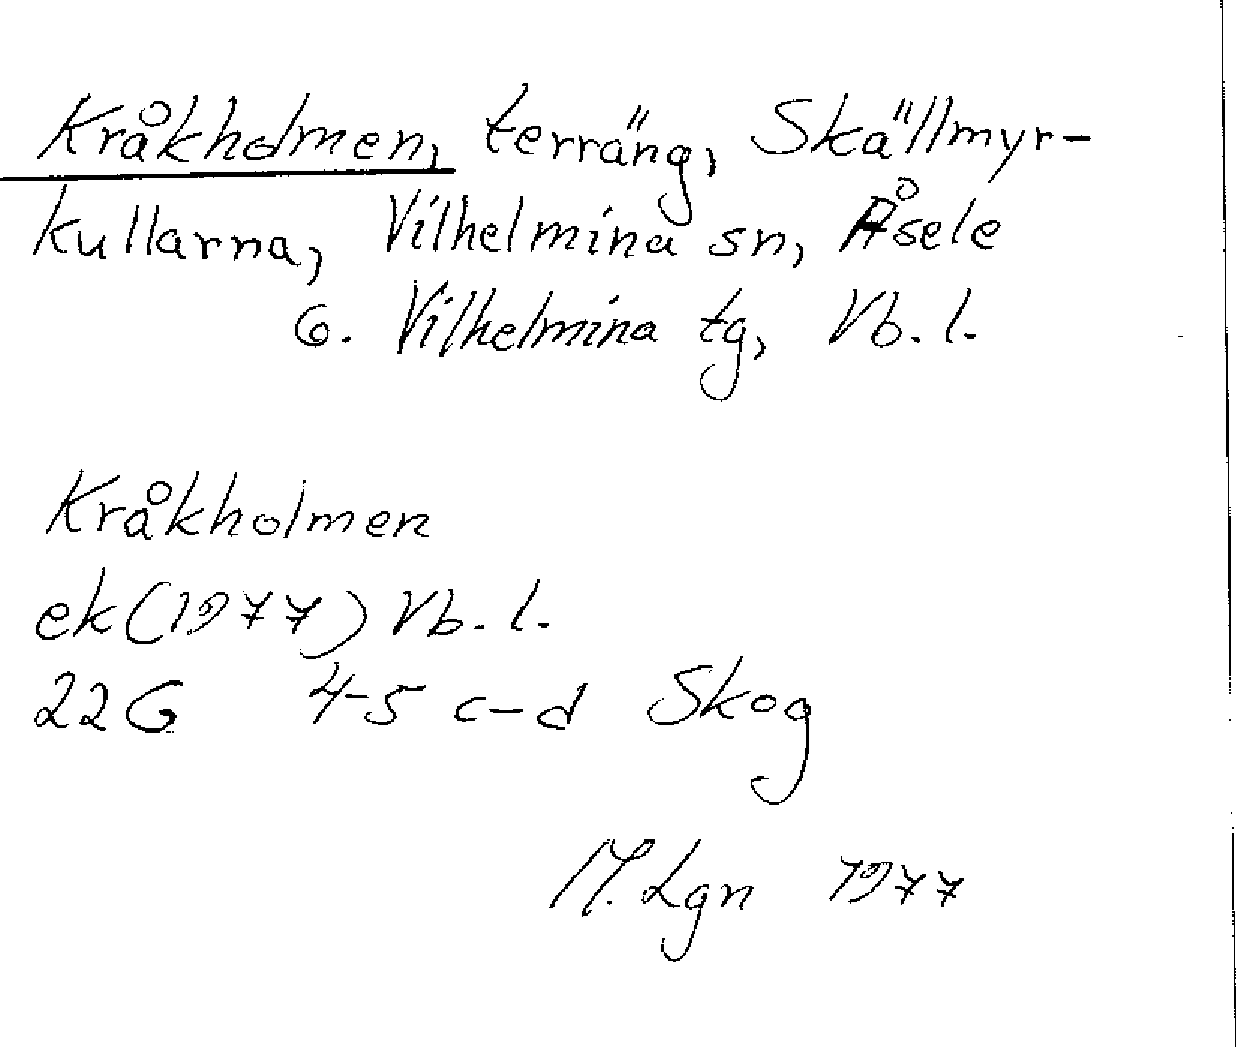 Kråkholmen, terräng, Skällmyr-
kullarna, Vilhelmina sn, Åsele
6. Vilhelmina tg, Vb. l.
Kråkholmen
ek (1977) Vb. l.
22G 4-5 c-d Skog
M. Lgn 1977